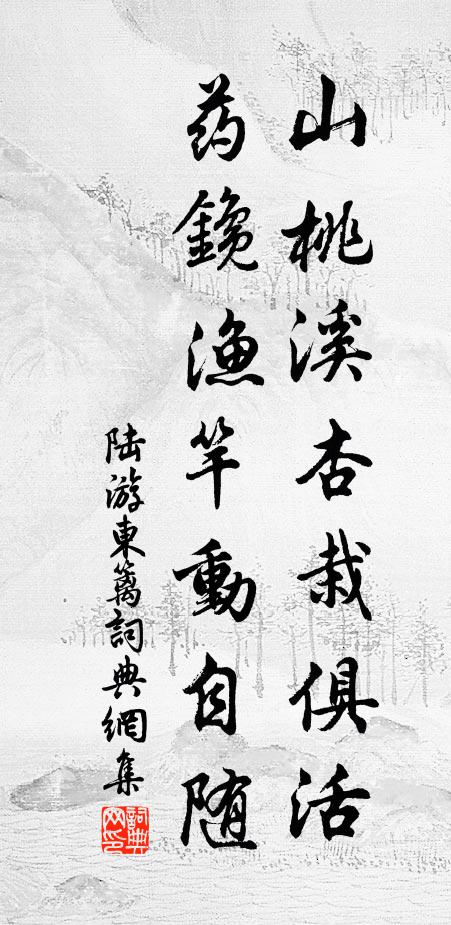 山桃溪杏栽俱活
药鑱渔竿動自随
陆游東篱詞典網集
詞典网印